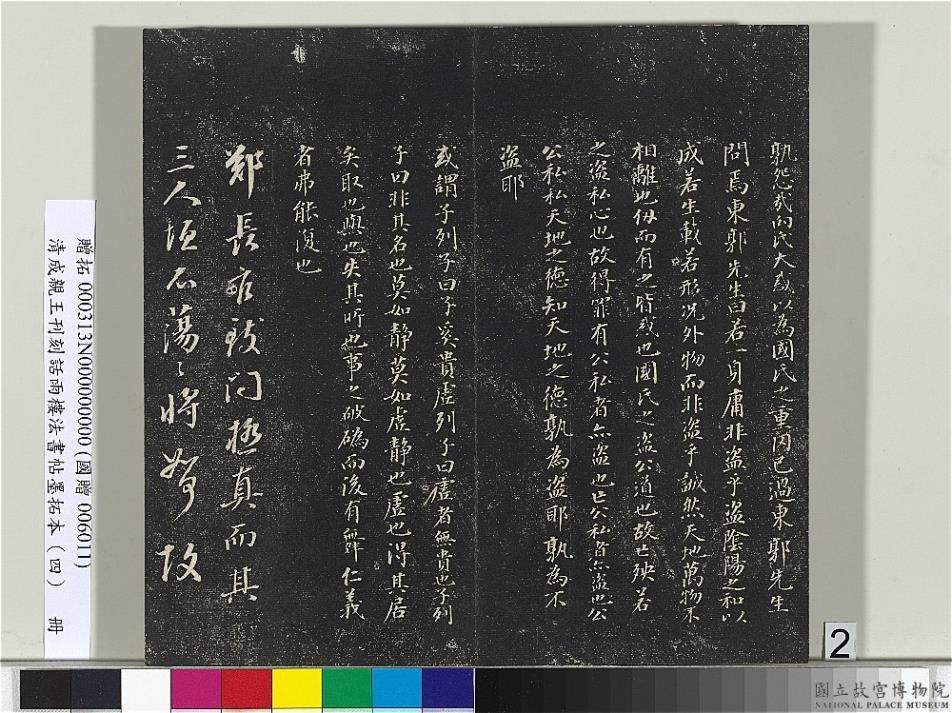 孰怨哉向氏大惑以為國氏之重罔己過東郭先生
問焉東郭先生曰若一身庸非盜乎盜陰陽之和以
成若生載若形況外物而非盜乎誠然天地萬物不
相離也仞而有之皆惑也國氏之盜公道也故亡殃若
之盜私心也故得罪有公私者亦盜也亡公私者亦盜也公
公私私天地之德知天地之德孰為盜耶孰為不
盜耶
或謂子列子曰子奚貴虛列子曰虛者無貴也子列
子曰非其名也莫如靜莫如虛靜也虛也得其居
矣取也與也失其所也事之破䃣而後有舞仁義
者弗能復也
鄭長 跋問極真而其
三人 石蕩〻將 故
贈拓 000313N000000000 (國贈 006011)
清成親王刊刻話雨樓法書帖墨拓本 (四) 冊
2
國立故宮博物院
NATIONAL PALACE MUSEUM